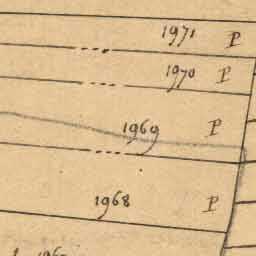 1971 P
1970 P
1969 P
1968 P